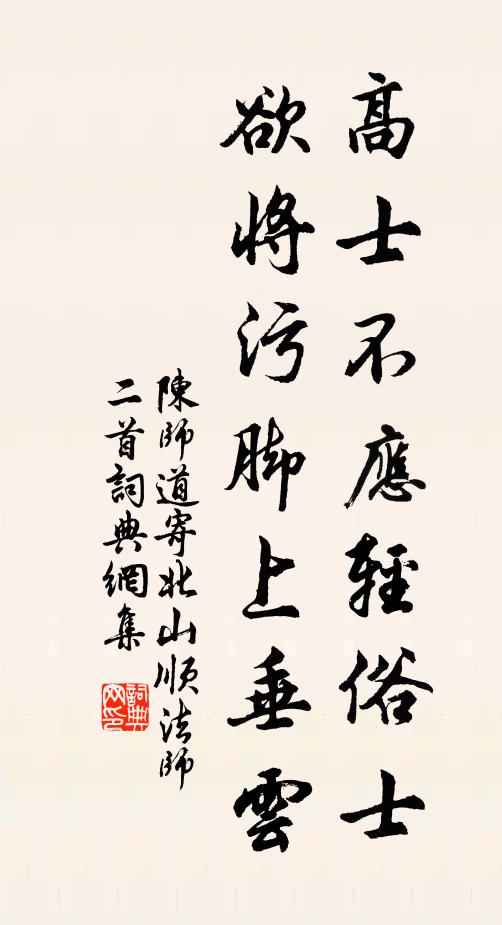 高士不應輕俗士
欲將污脚上垂雲
陳師道寄北山順法師
二首詞典網集
詞典
网印